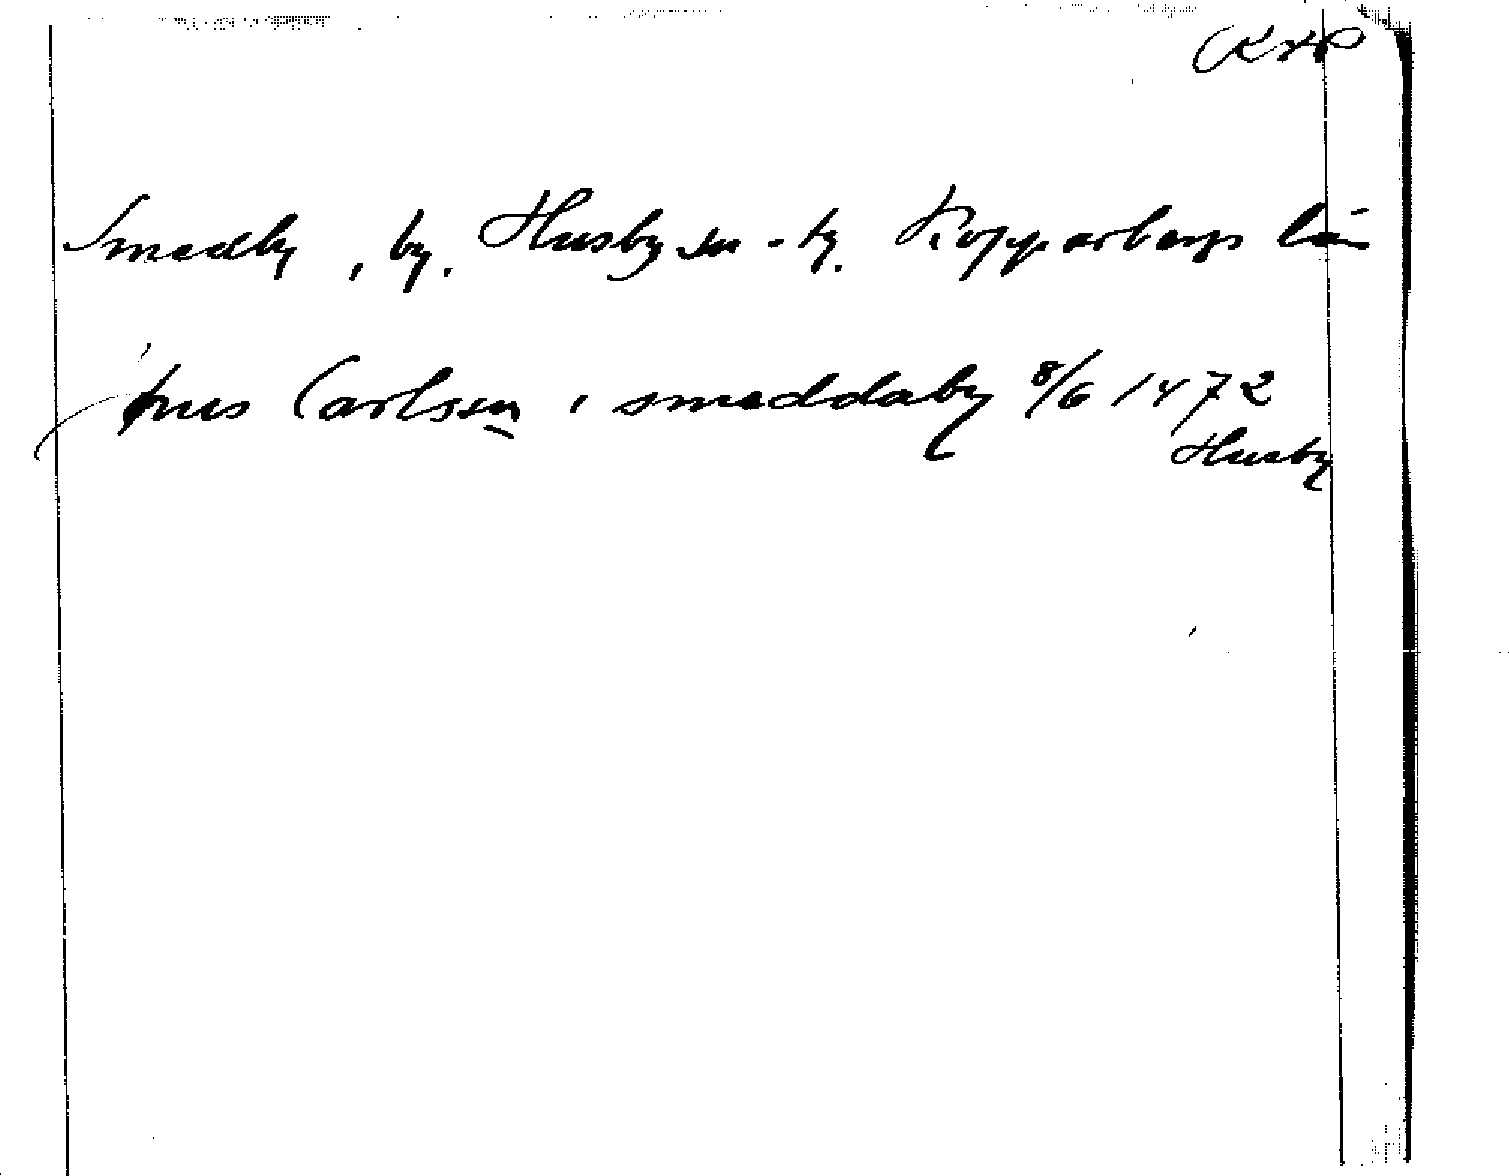 Smedby, by. Husby sn - ty. Kopparbergs län
Carlsson i smeddaby 8/6 1472
Husby